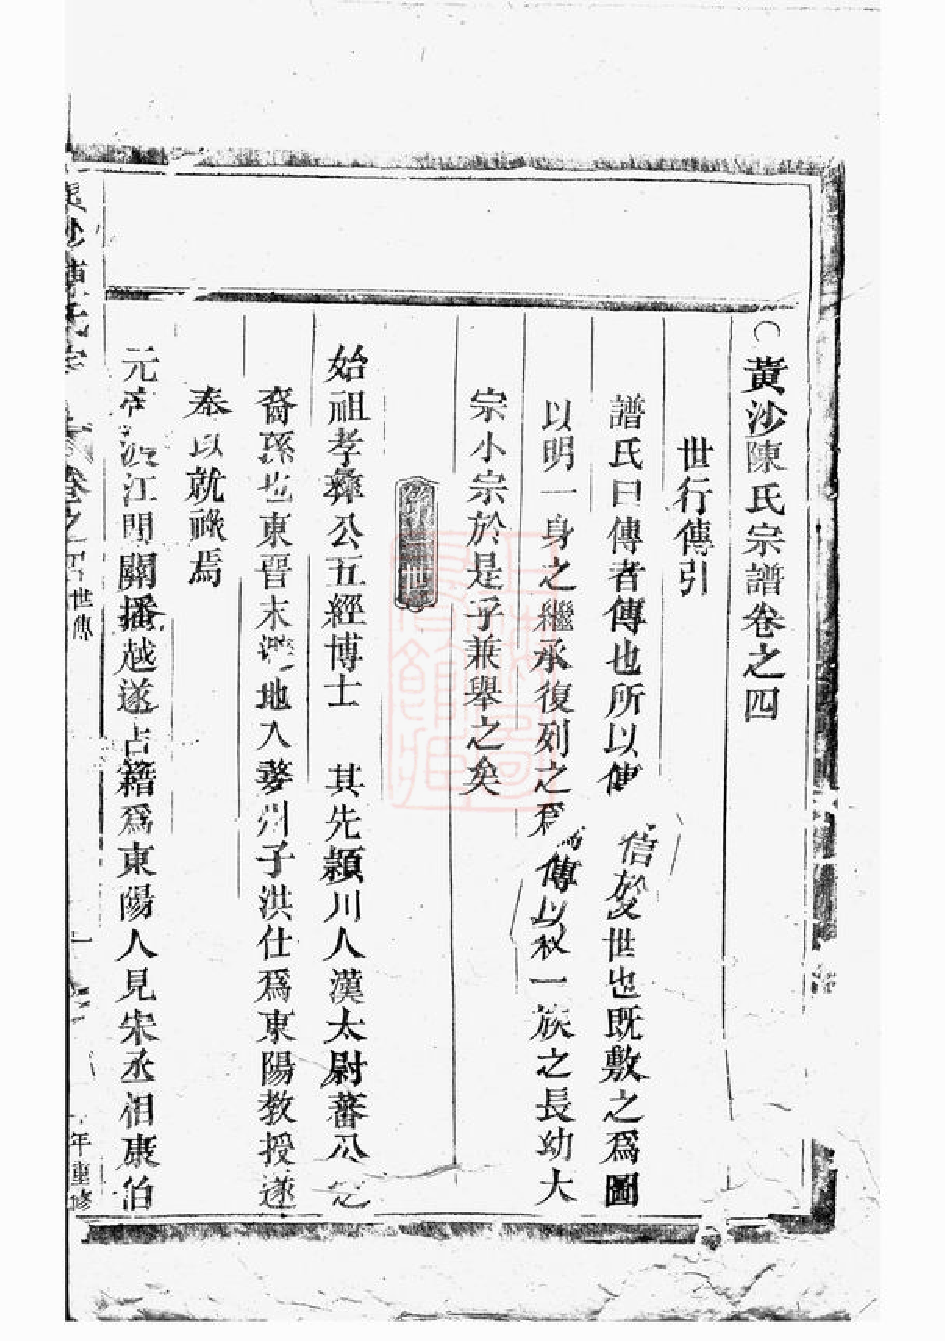 黃沙陳氏宗譜卷之四
世行傳引
譜氏曰傳者傳也所以傳信於後世也既敷之爲圖
以明一身之繼承復列之爲傳以叙一族之長幼大
宗小宗於是乎兼舉之矣
第一世
始祖孝彝公五經博士 其先潁川人漢太尉蕃公
裔孫也東晉末 地入婺州子洪仕爲東陽教授遂
奉以就祿焉
元 江 關播越遂占籍爲東陽人見宋丞相康伯
黃沙陳氏宗
卷之四 世傳
一
年重修